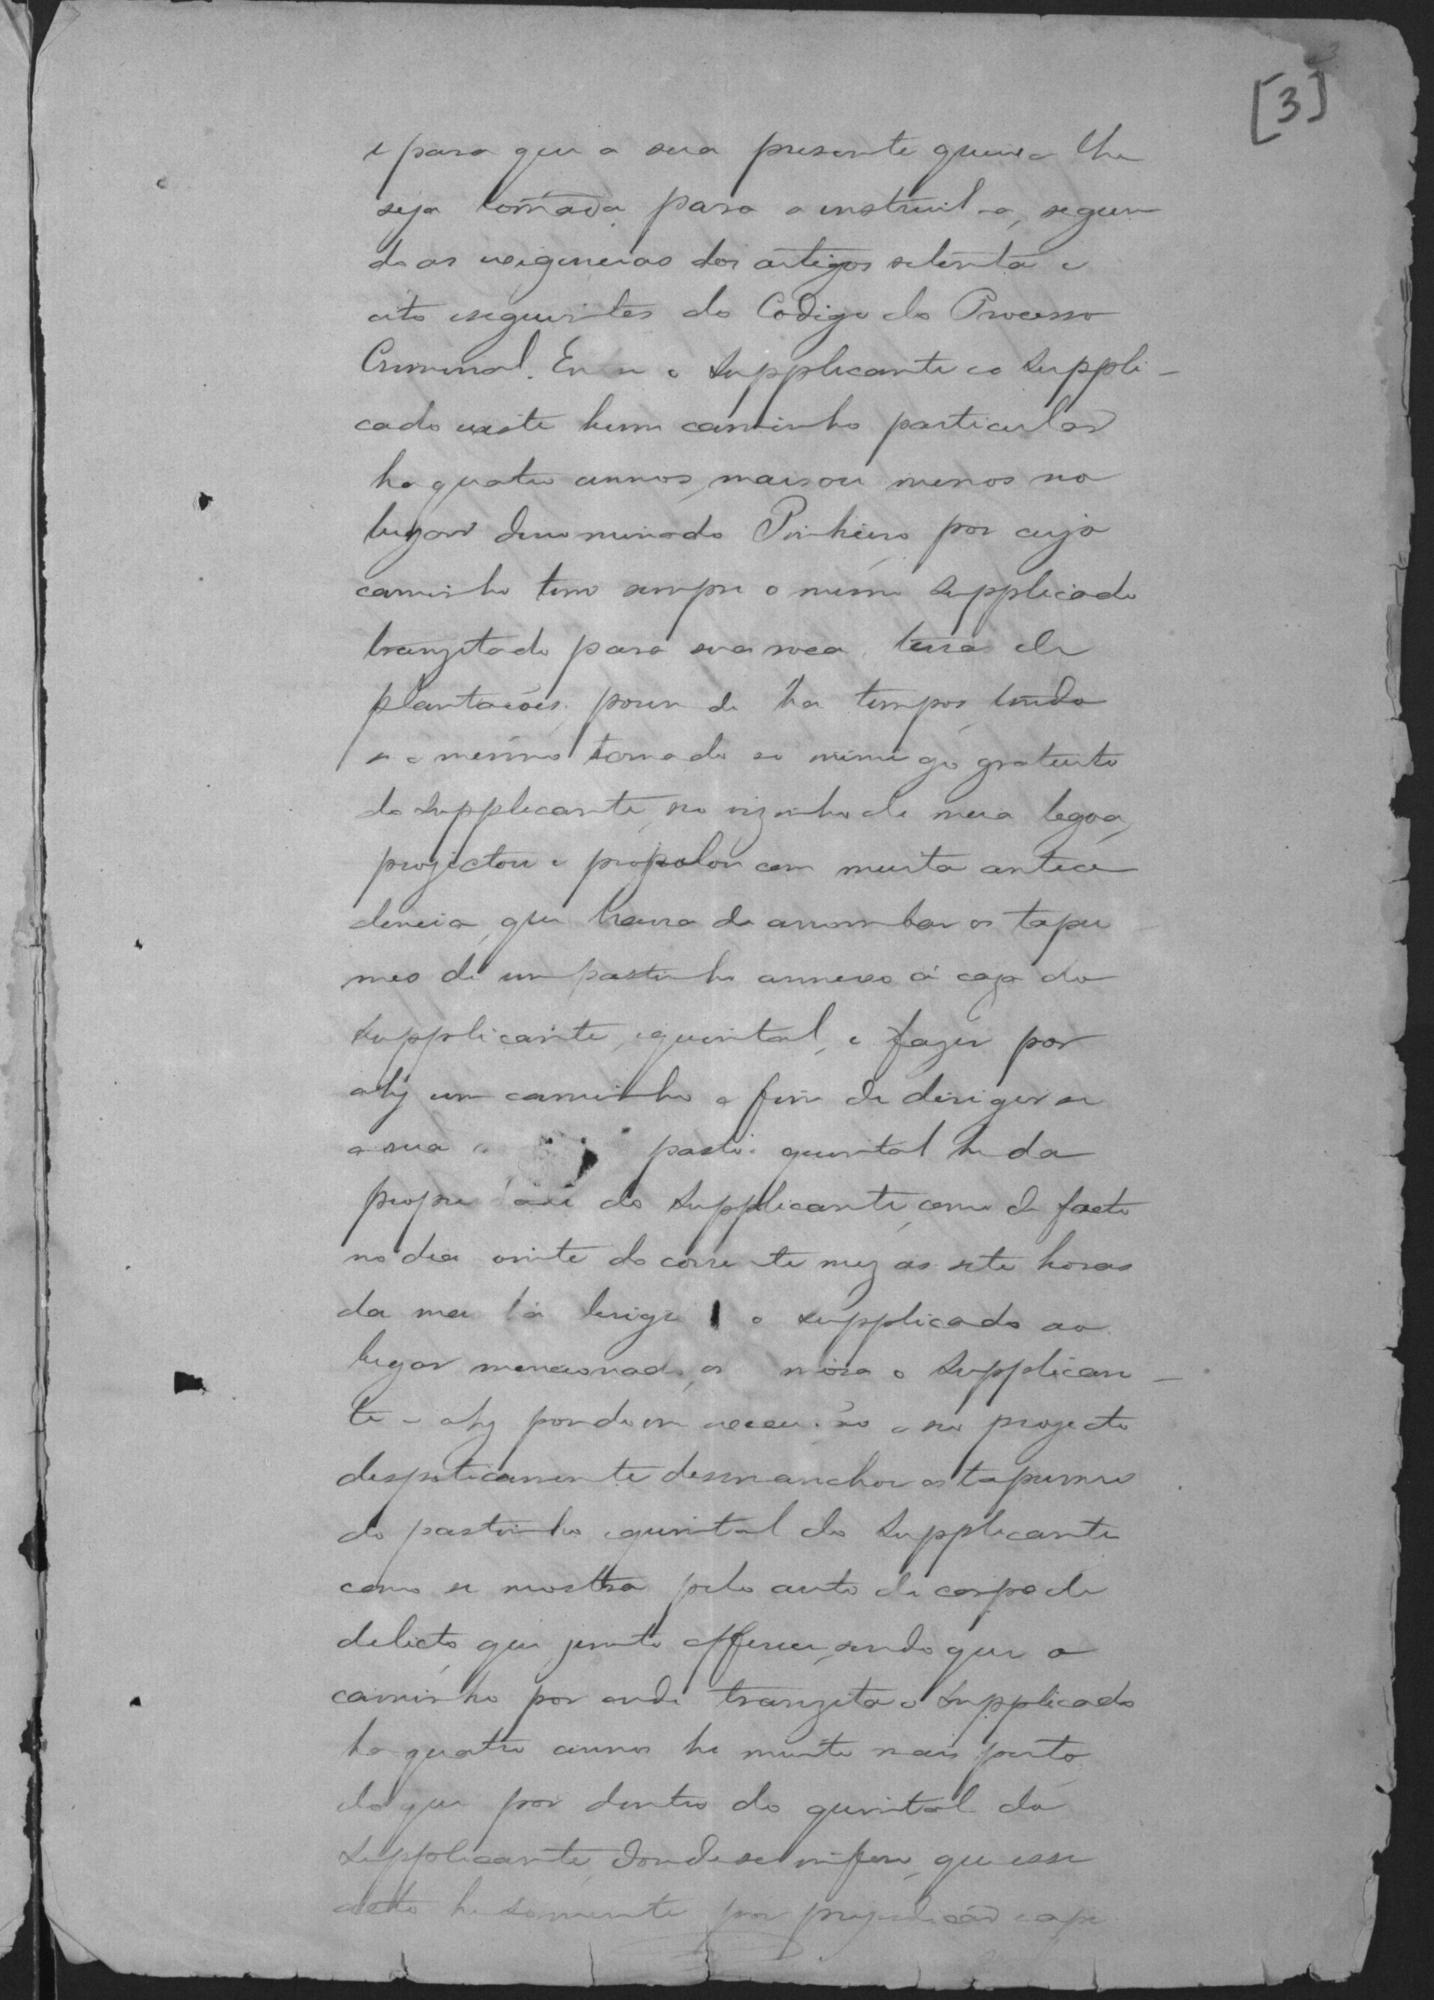 [3]
e para que a sua presente queixa lhe
seja tomada para o instruil-a, segun
do as exigencias dos artigos setenta e
oito eseguintes do Codigo do Processo
Criminal. Entre o Supplicante eo Suppli-
cado existe hum caminho particular
ha quatro annos, maisou menos no
lugar denominado Pinheiro por cujo
caminho tem sempre o mesmo Supplicado
tranzitado para sua roca, terras de
plantacões, porem de ha tempos, tendo
se o mesmo tornado se inimigo gratuito
do Supplicante, seo vizinho de meia legoa,
projectou e propalou com muita antece
dencia, que havia de arrombar os tapu
mes de um pastinho annexo á caza do
Supplicante, equintal, e fazer por
ahy um caminho a fim de dirigir se
a sua pasto. quintal he da
propriedade do Supplicante, como de facto
no dia vinte do corrente mez as sete horas
da manhã dirigio o supplicado ao
lugar mencionado, onde mora o Supplican-
te e ahy pondo em execução o seo projecto
despoticamente desmanchou os tapumes
do pastinho equintal do Supplicante
como se mostra pelo auto de corpo de
delicto que junto offerece, sendo que o
caminho por onde tranzita o Supplicado
ha quatro annos he muito mais perto
do que por dentro do quintal do
Supplicante, donde se infere, que esse
acto he somente por